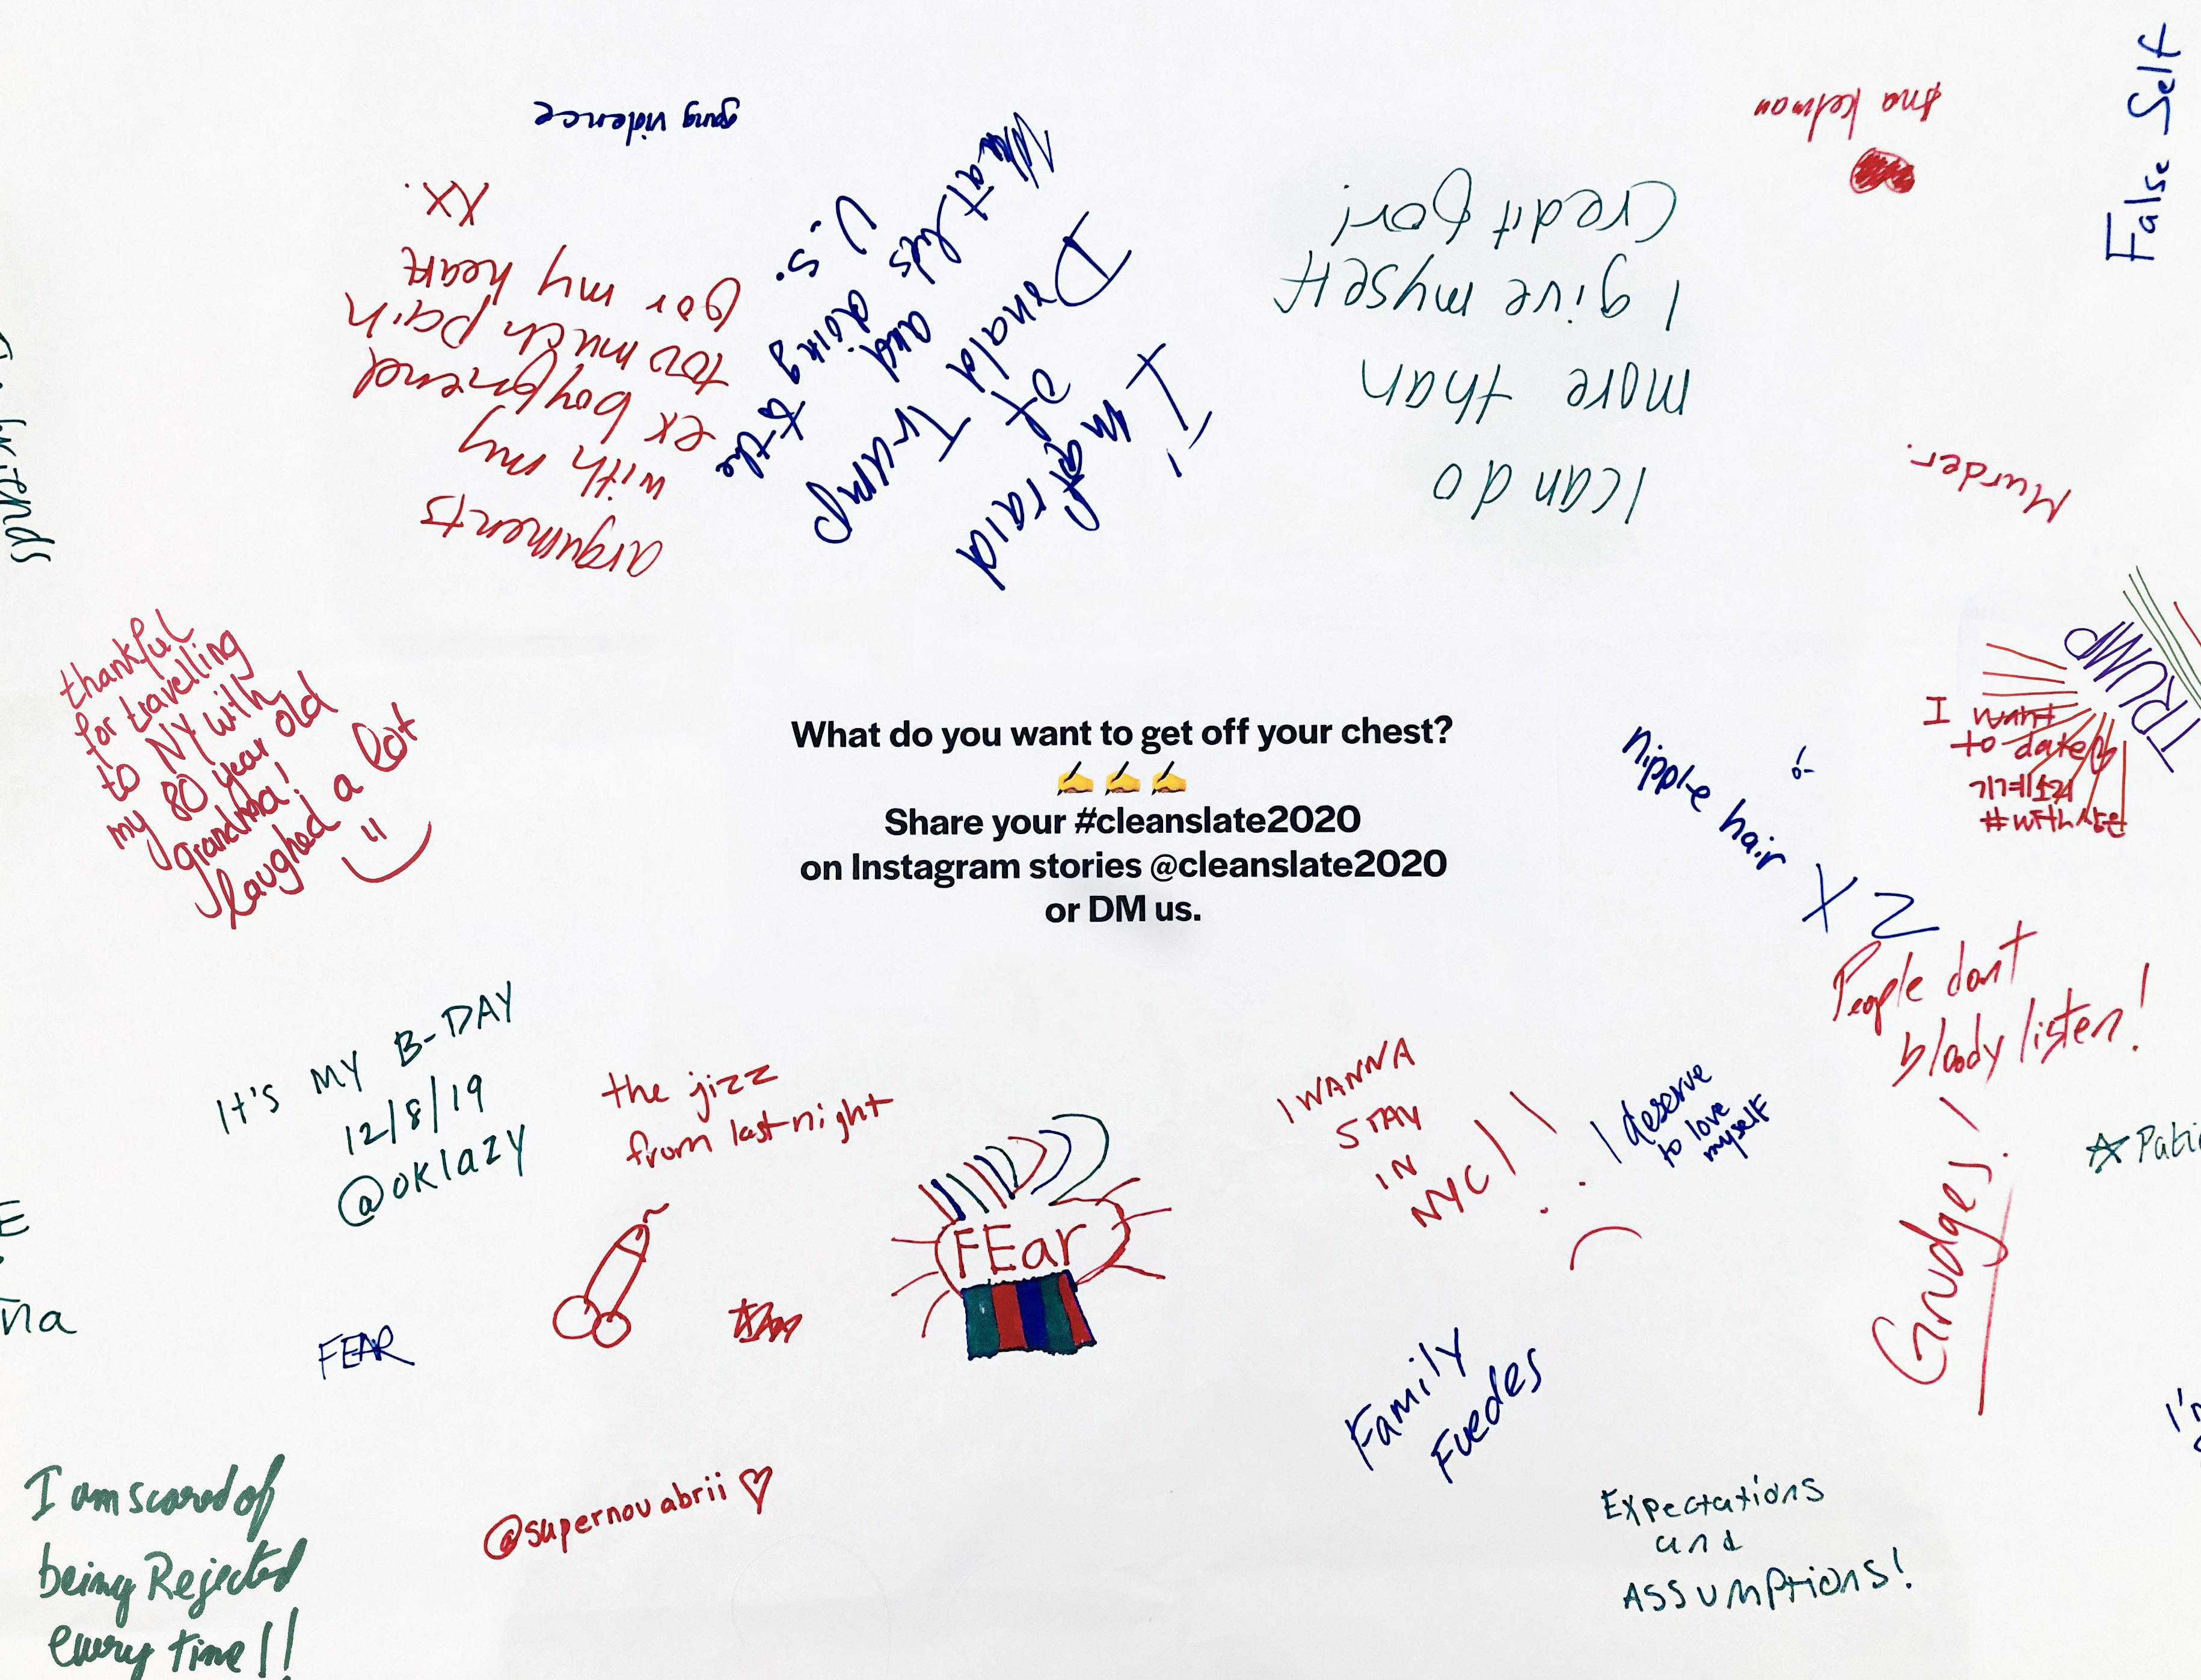 gang violence
arguments
with my
ex boyfriend
too much pain
for my heart
xx.
I'm
afraid
of
Donald
Trump
and
what
he's
doing
to the
U.S.
I can do
more than
I give myself
credit for!
kelman
False Self
Murder.
TRUMP
thankful
for travelling
to NY with
my 80 year old
grandma!
laughed a lot
What do you want to get off your chest?
✍️ ✍️ ✍️
Share your #cleanslate2020
on Instagram stories @cleanslate2020
or DM us.
nipple hair
X 2
I want
to date
기계소리
#with상원
People dont
bloody listen!
IT'S MY B-DAY
12/8/19
@oklazy
the jizz
from last night
FEar
I WANNA
STAY
IN
NYC!!
I deserve
to love
myself
Grudges!
FEAR
Family
Fuedes
@supernovabrii
Expectations
and
Assumptions!
I am scared of
being Rejected
every time!!